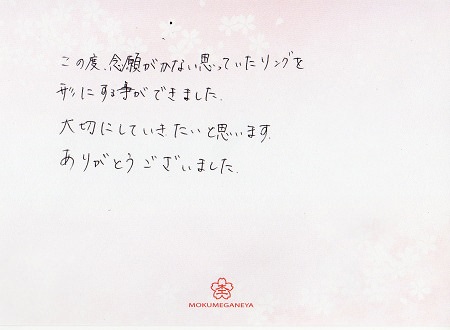 この度、念願がかない思っていたリングを
形にする事ができました。
大切にしていきたいと思います。
ありがとうございました。
MOKUMEGANEYA